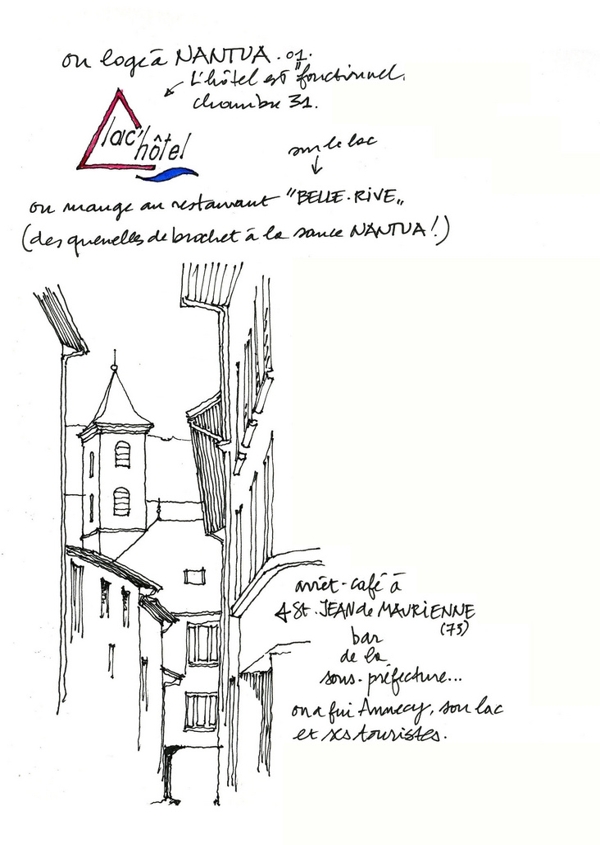 on loge à NANTUA.01.
L'hôtel est "fonctionnel.
chambre 31.
lac'
hôtel
sur le lac
on mange au restaurant "BELLE.RIVE„
(des quenelles de brochet à la sauce NANTUA!)
arrêt-café à
St. JEAN de MAURIENNE
(73)
bar
de la
sous-préfecture...
on a fui Annecy, son lac
et ses touristes.